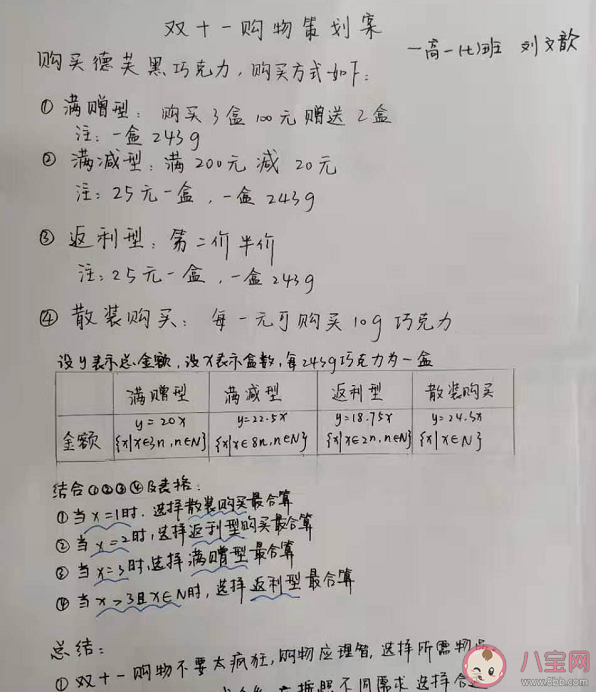 双十一购物策划案
一高一(七)班 刘文歆
购买德芙黑巧克力，购买方式如下：
① 满赠型：购买3盒100元赠送2盒
注：一盒243g
② 满减型：满200元减20元
注：25元一盒，一盒243g
③ 返利型：第二价半价
注：25元一盒，一盒243g
④ 散装购买：每一元可购买10g巧克力
设y表示总金额，设x表示盒数，每243g巧克力为一盒
满赠型 满减型 返利型 散装购买
金额 y=20x y=22.5x y=18.75x y=24.3x
{x|x∈3n,n∈N} {x|x∈8n,n∈N} {x|x∈2n,n∈N} {x|x∈N}
结合①②③④及表格：
①当x=1时，选择散装购买最合算
②当x=2时，选择返利型购买最合算
③当x=3时，选择满赠型最合算
④当x>3且x∈N时，选择返利型最合算
总结：
①双十一购物不要太疯狂，购物应理智，选择所需物品
不同需求选择合适
八宝网
www.8bb.com